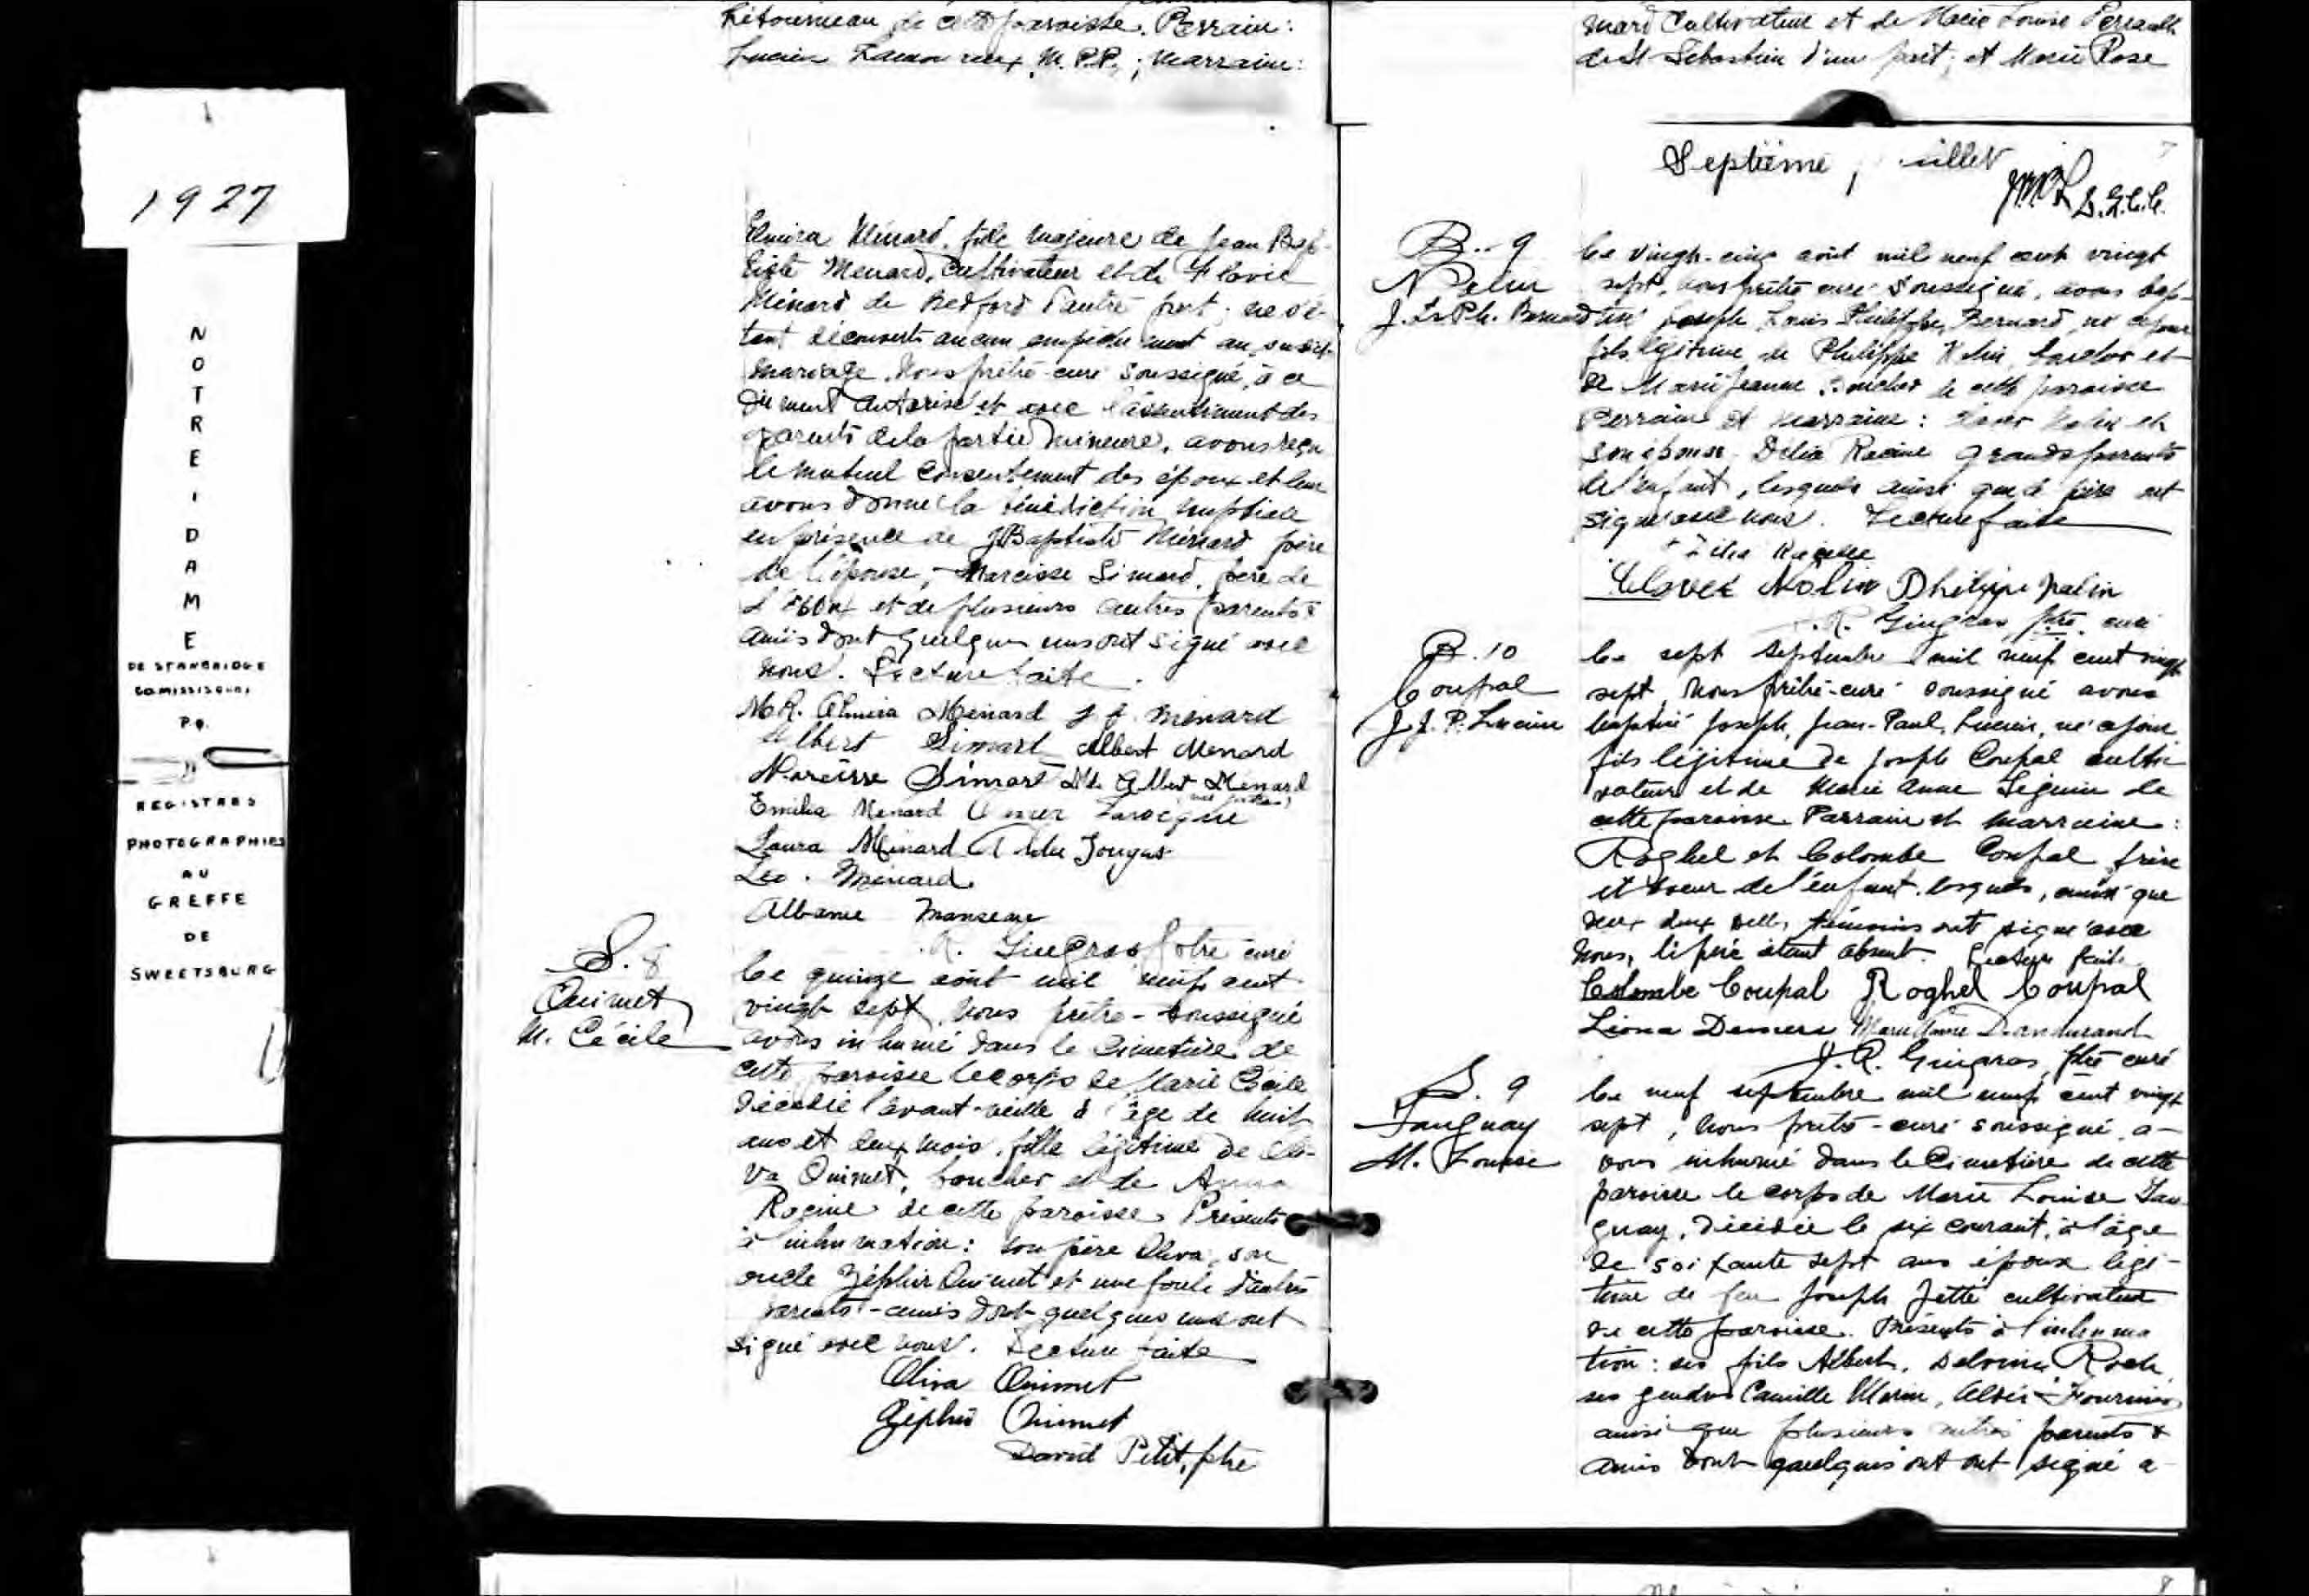 1927
NOTRE DAME
DE STANBRIDGE
CO MISSISQUOI
P.Q.
REGISTRES
PHOTOGRAPHIES
AU
GREFFE
DE
SWEETSBURG
de cette paroisse. Parrain:
Lucien M.P.P.; Marraine:
Elmira Ménard, fille majeure de Jean Bap-
tiste Menard, Cultivateur et de Flavie
Ménard de Bedford d'autre part; ne s'é-
tant découvert aucun empêchement au susdit
mariage, Nous prêtre-curé soussigné, à ce
dûment autorisé et avec l'assentiment des
parents de la partie mineure, avons reçu
le mutuel consentement des époux et leur
avons donné la bénédiction nuptiale
en présence de J Baptiste Ménard père
de l'épouse, Narcisse Simard, père de
l'époux et de plusieurs autres parents &
amis dont quelques uns ont signé avec
nous. Lecture faite.
M.R. Almira Menard J B. Menard
Albert Simard Albert Menard
Narcisse Simard Albert Menard
Emilia Menard Omer Larocque
Laura Ménard
Leo. Ménard
Albanie Manseau
R. Gingras ptre curé
S. 8
Ouimet
M. Cécile
Ce quinze août mil neuf cent
vingt sept, Nous prêtre-soussigné
avons inhumé dans le Cimetière de
cette paroisse le corps de Marie Cécile
décédée l'avant-veille à l'âge de huit
ans et deux mois, fille légitime de Oli-
va Ouimet, boucher et de Anna
Racine de cette paroisse. Présents
à l'inhumation: son père Oliva, son
oncle Zéphir Ouimet et une foule d'autres
parents-amis dont quelques uns ont
signé avec nous. Lecture faite
Oliva Ouimet
Zéphir Ouimet
David Petit, ptre
Cultivateur et de Marie Louise Perrault
de St Sébastien d'une part; et Marie Rose
Septième, juillet 7
B. 9
Nolin
J. Ls Ph. Bernard
Ce vingt-cinq août mil neuf cent vingt
sept, nous prêtre curé soussigné, avons bap-
tisé Joseph, Louis Philippe, Bernard, né ce jour
fils légitime de Philippe Nolin, et
de Marie Jeanne Boucher de cette paroisse
Parrain et Marraine: Nolin et
son épouse Délia Racine grands parents
de l'enfant, lesquels ainsi que le père ont
signé avec nous. Lecture faite
Délia Racine
Nolin Philippe Nolin
R. Gingras, ptre. curé
B. 10
Coupal
J. J. P. Lucien
Ce sept septembre mil neuf cent vingt
sept, Nous prêtre-curé soussigné avons
baptisé Joseph, Jean-Paul, Lucien, né ce jour
fils légitime de Joseph Coupal culti-
vateur et de Marie Anne Séguin de
cette paroisse. Parrain et Marraine:
Roghel et Colombe Coupal frère
et soeur de l'enfant. lesquels, ainsi que
deux témoins ont signé avec
Nous, le père étant absent. Lecture faite.
Colombe Coupal Roghel Coupal
Liona Demers Marie Anne Dandurand
J. R. Gingras, ptre curé
S. 9
Tanguay
M. Louise
Ce neuf septembre mil neuf cent vingt
sept, Nous prêtre-curé soussigné, a-
vons inhumé dans le Cimetière de cette
paroisse le corps de Marie Louise Tan-
guay, décédée le six courant, à l'âge
de soixante sept ans épouse légi-
time de feu Joseph Jetté cultivateur
de cette paroisse. Présents à l'inhuma
tion: ses fils Albert, Delvini, Roch,
ses gendres Camille Morin, Fournier
ainsi que plusieurs autres parents &
amis dont quelques uns ont signé a-
8